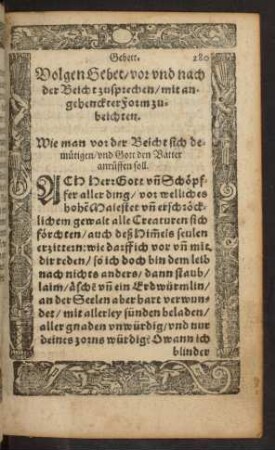 Gebett. 280
Volgen Gebet/ vor vnd nach
der Beicht zusprechen/ mit an-
gehenckter Form zu-
beichten.
Wie man vor der Beicht sich de-
mütigen/ vnd Gott den Vatter
anrüffen soll.
ACH Herr Gott vñ Schöpf-
fer aller ding/ vor welliches
hohē Maiestet vñ erschröck-
lichem gewalt alle Creaturen sich
förchten/ auch deß Him̄els seulen
erzittern: wie darff ich vor vñ mit
dir reden/ so ich doch bin dem leib
nach nichts anders/ dann staub/
laim/ äschē vñ ein Erdwürmlin/
an der Seelen aber hart verwun-
det/ mit allerley sünden beladen/
aller gnaden vnwürdig/ vnd nur
deines zorns würdig? O wann ich
blinder